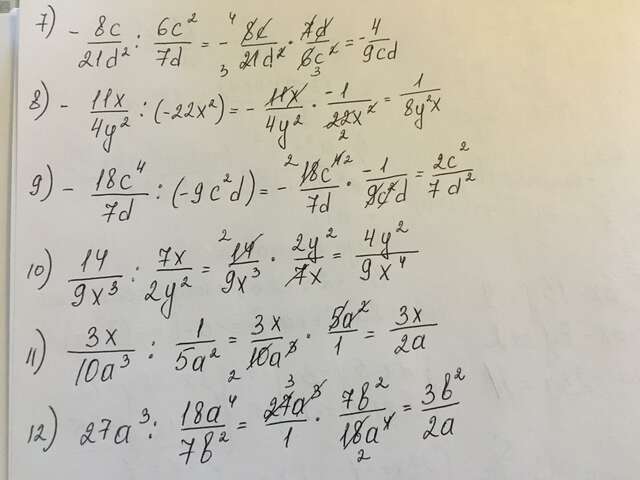 7) - 8c/21d² : 6c²/7d = - 8c/21d² · 7d/6c² = - 4/9cd
8) - 11x/4y² : (-22x²) = - 11x/4y² · -1/22x² = 1/8y²x
9) - 18c⁴/7d : (-9c²d) = - 18c⁴/7d · -1/9c²d = 2c²/7d²
10) 14/9x³ : 7x/2y² = 14/9x³ · 2y²/7x = 4y²/9x⁴
11) 3x/10a³ : 1/5a² = 3x/10a³ · 5a²/1 = 3x/2a
12) 27a³ : 18a⁴/7b² = 27a³/1 · 7b²/18a⁴ = 3b²/2a